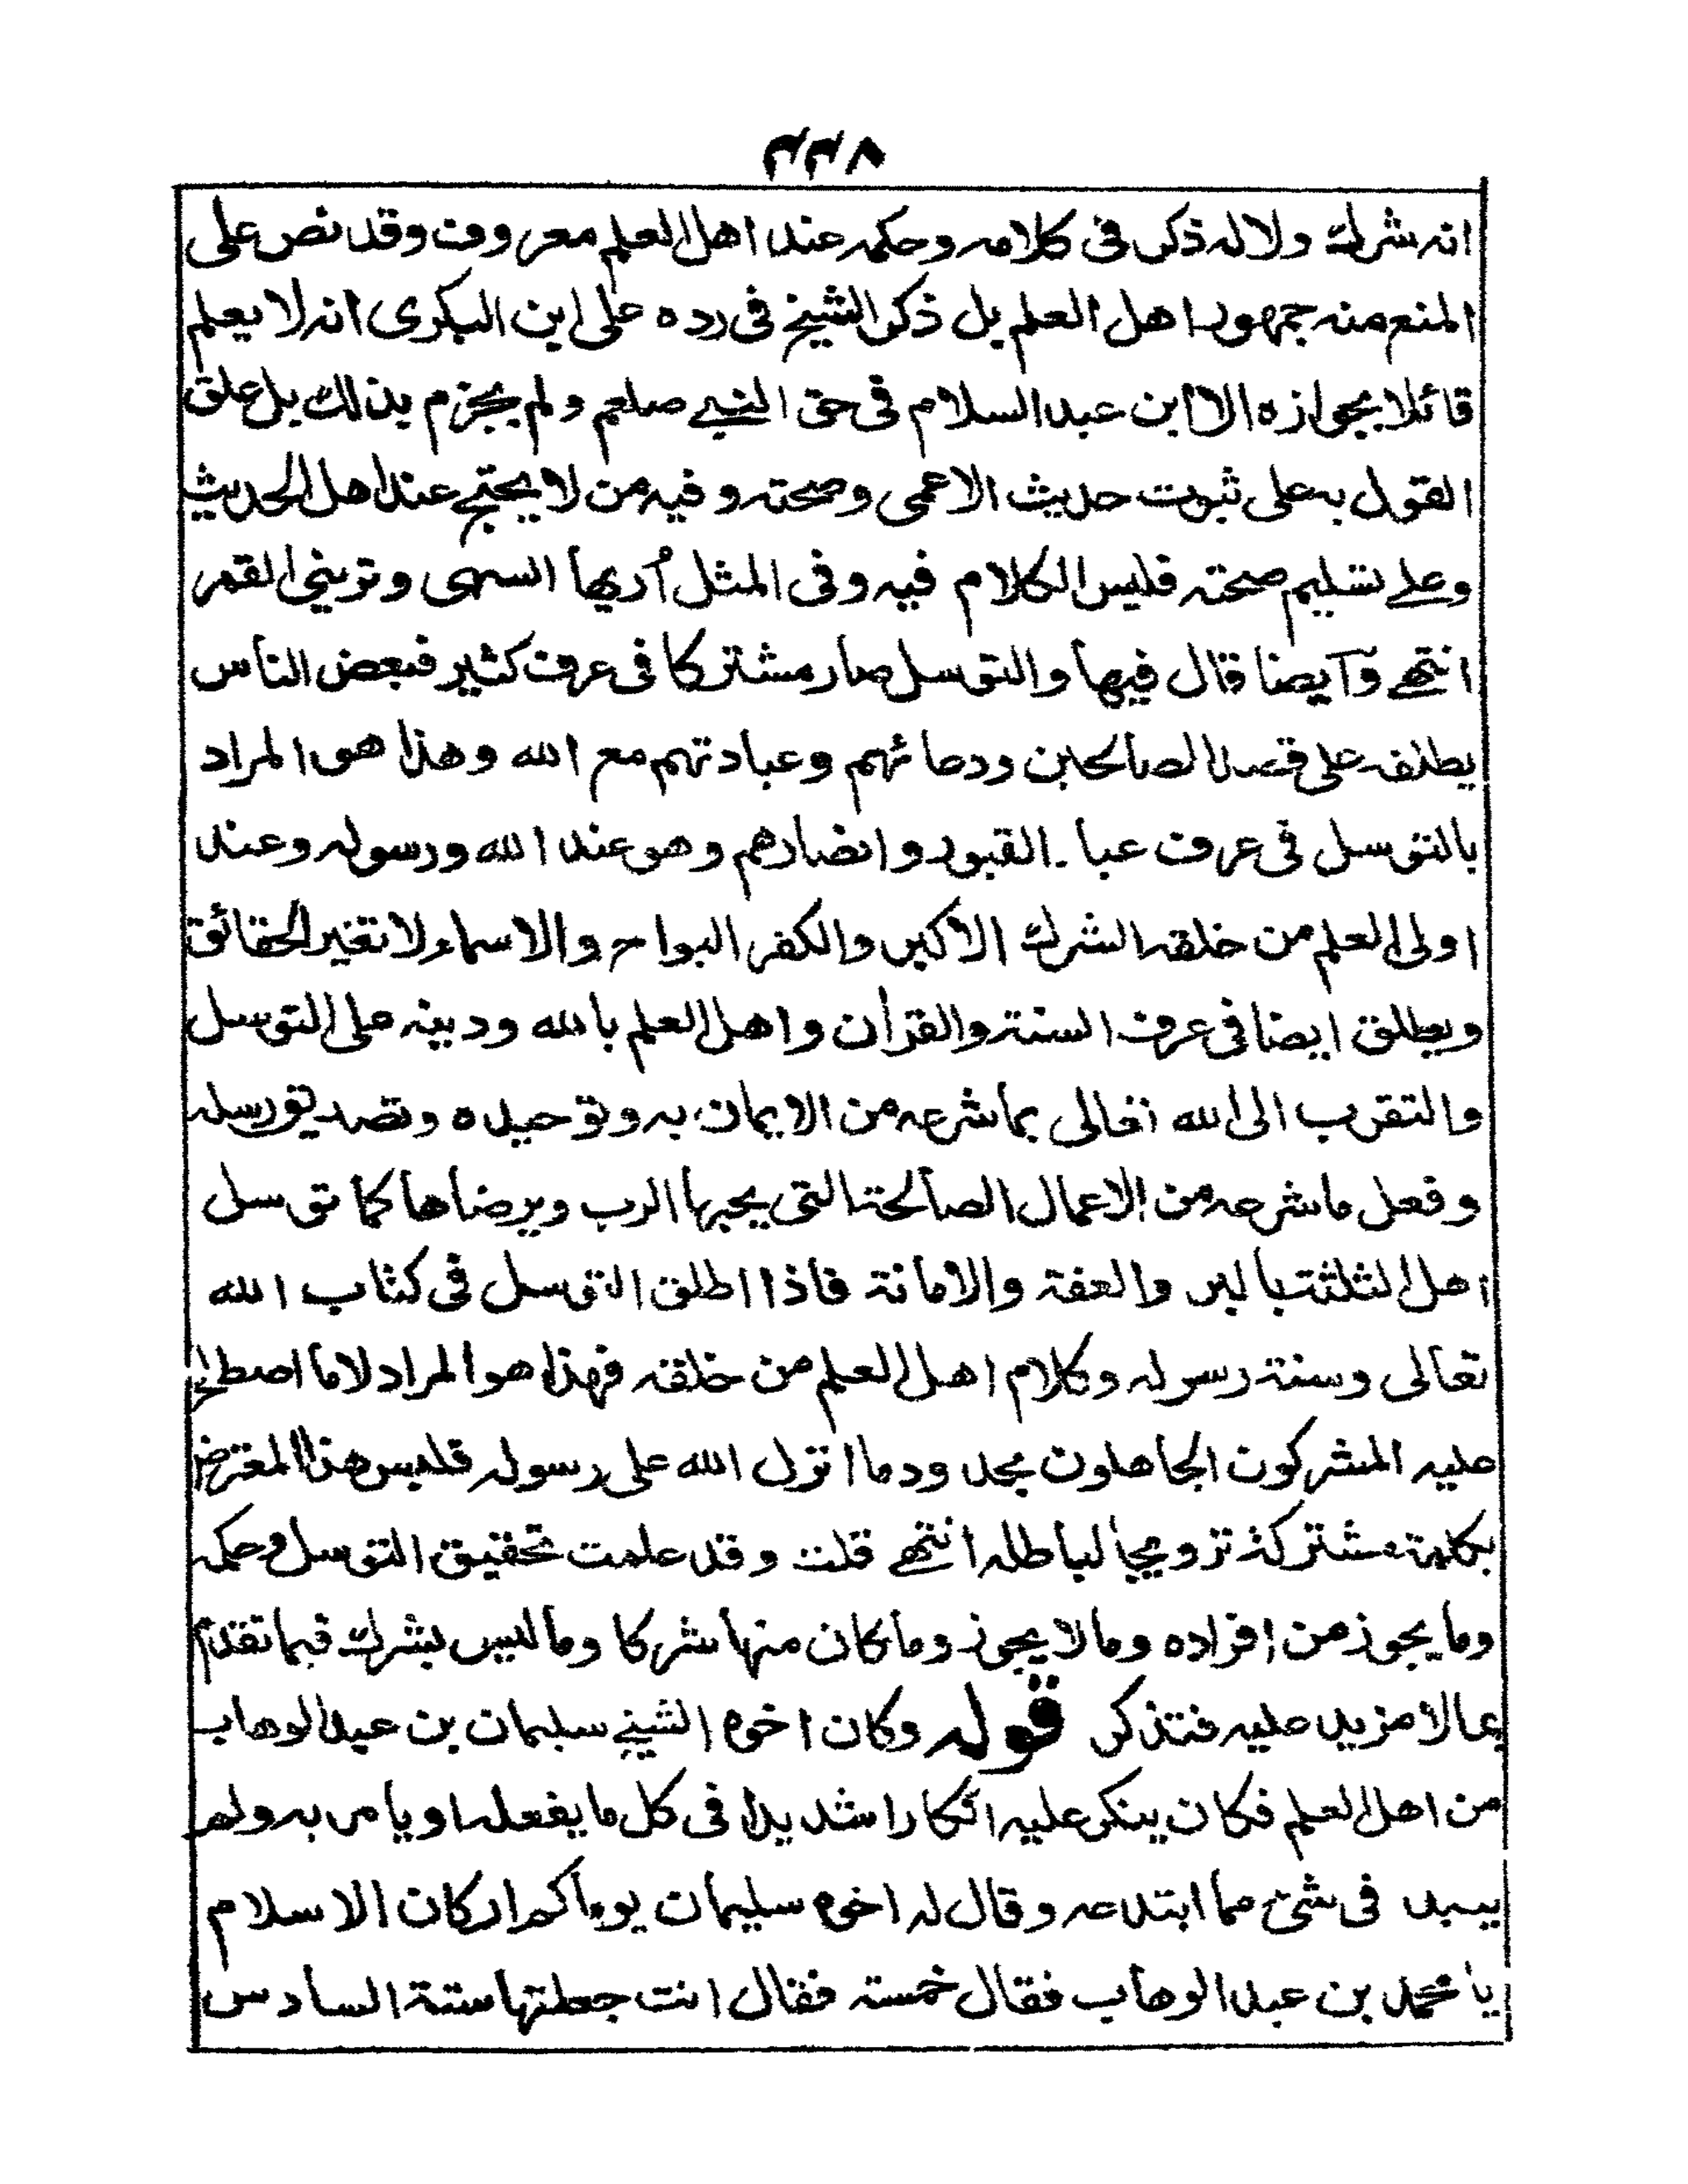 ٣٣٨
انه شرك ولا له ذكر فى كلامه وحكمه عند اهل العلم معروف وقد نص على
المنع منه جمهور اهل العلم بل ذكر الشيخ فى رده على ابن البكرى انه لا يعلم
قائلا بجوازه الا ابن عبد السلام فى حق النبے صلعم ولم يجزم بذلك بل علق
القول به على ثبوت حديث الاعمى وصحته وفيه من لا يحتج عند اهل الحديث
وعلے تسليم صحته فليس الكلام فيه وفى المثل أريها السهى وترينى القمر
انتهے وآيضا قال فيها والتوسل صار مشتركا فى عرف كثير فبعض الناس
يطلقه على قصد الصالحين ودعائهم وعبادتهم مع الله وهذا هو المراد
بالتوسل فى عرف عباد القبور وانصارهم وهو عند الله ورسوله وعند
اولى العلم من خلقه الشرك الاكبر والكفر البواح والاسماء لا تغير الحقائق
ويطلق ايضا فى عرف السنة والقرأن واهل العلم بالله ودينه على التوسل
والتقرب الى الله تعالى بما شرعه من الايمان به وتوحيده وتصديق رسله
وفعل ما شرعه من الاعمال الصالحة التى يحبها الرب ويرضاها كما توسل
اهل الثلثة بالبر والعفة والامانة فاذا اطلق التوسل فى كتاب الله
تعالى وسنة رسوله وكلام اهل العلم من خلقه فهذا هو المراد لا ما اصطلح
عليه المشركون الجاهلون بحدود ما انزل الله على رسوله فلبس هذا المعترض
بكلمة مشتركة ترويجا لباطله انتهے قلت وقد علمت تحقيق التوسل وحكمه
وما يجوز من افراده وما لا يجوز وما كان منها شركا وما ليس بشرك فيما تقدم
بما لا مزيد عليه فتذكر قوله وكان اخوه الشيخ سليمان بن عبد الوهاب
من اهل العلم فكان ينكر عليه انكارا شديدا فى كل ما يفعله او يامر به ولم
يبد فى شئ مما ابتدعه وقال له اخوه سليمان يوما كم اركان الاسلام
يا محمد بن عبد الوهاب فقال خمسة فقال انت جعلتها ستة السادس